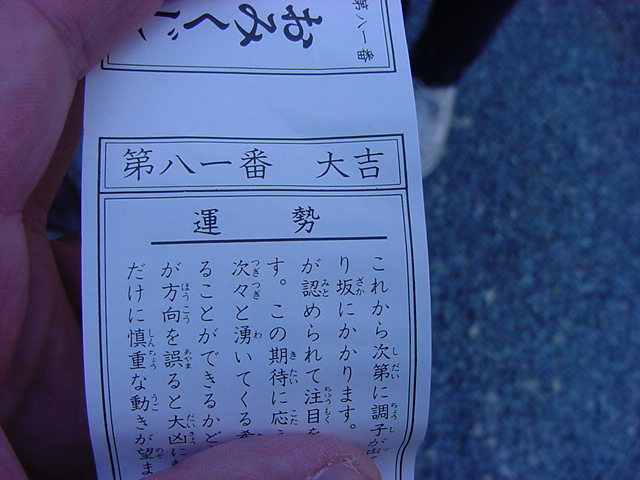 第八一番
おみくじ
第八一番 大吉
運勢
これから次第に調子が出
り坂にかかります。
が認められて注目を
す。この期待に応
次々と湧いてくる
ることができるかど
が方向を誤ると大凶に
だけに慎重な動きが望ま